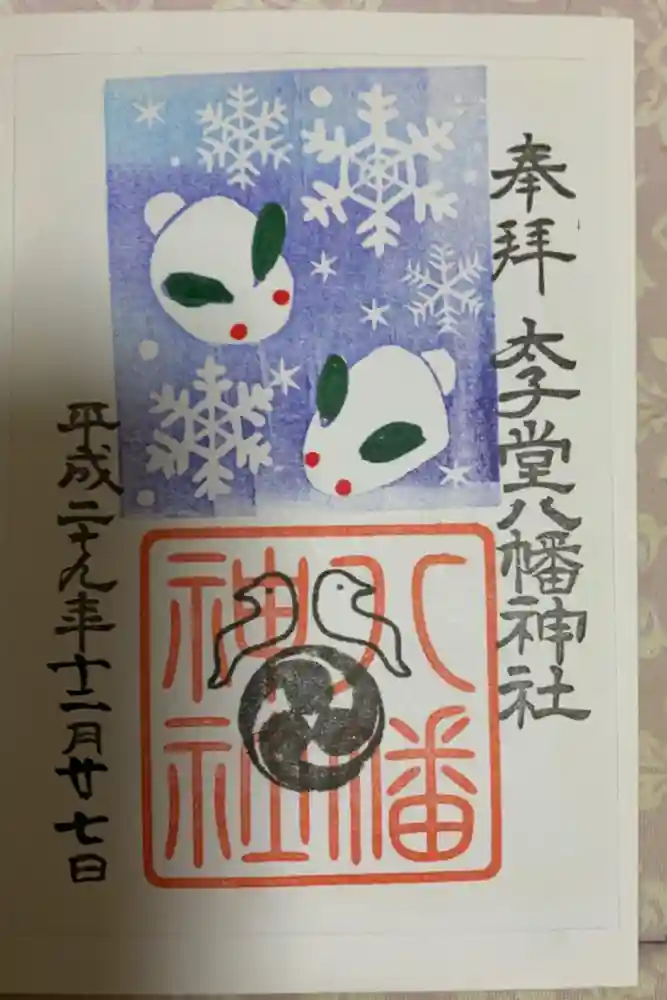 奉拝 太子堂八幡神社
八幡
神社
平成二十九年十二月廿七日